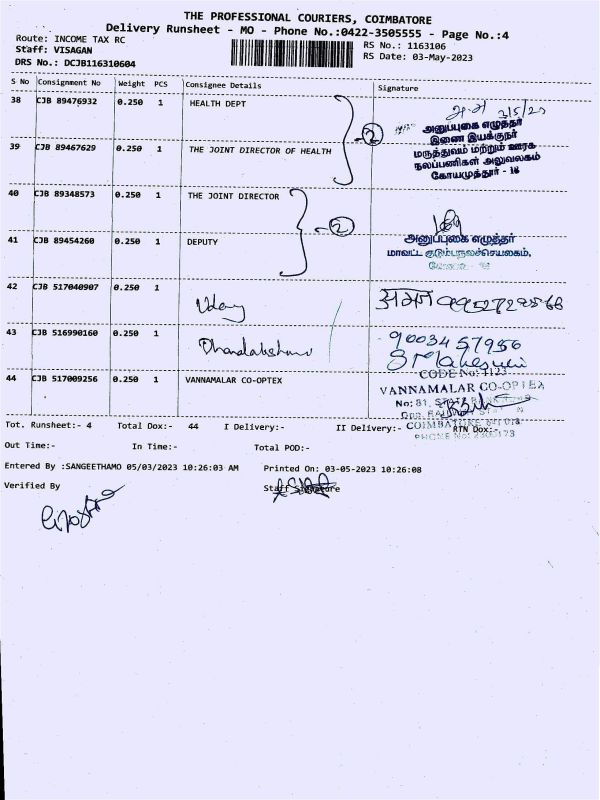 THE PROFESSIONAL COURIERS, COIMBATORE
Delivery Runsheet - MO - Phone No.:0422-3505555 - Page No.:4
Route: INCOME TAX RC
RS No.: 1163106
Staff: VISAGAN
RS Date: 03-May-2023
DRS No.: DCJB116310604
S No Consignment No Weight PCS Consignee Details Signature
38 CJB 89476932 0.250 1 HEALTH DEPT
3/5/23
2
அனுப்புகை எழுத்தர்
இணை இயக்குநர்
39 CJB 89467629 0.250 1 THE JOINT DIRECTOR OF HEALTH
மருத்துவம் மற்றும் ஊரக
நலப்பணிகள் அலுவலகம்
கோயமுத்தூர் - 18
40 CJB 89348573 0.250 1 THE JOINT DIRECTOR
2
41 CJB 89454260 0.250 1 DEPUTY
அனுப்புகை எழுத்தர்
மாவட்ட குடும்பநலச்செயலகம்,
42 CJB 517040907 0.250 1
Uday
43 CJB 516990160 0.250 1
9003457956
CODE No: 4123
44 CJB 517009256 0.250 1 VANNAMALAR CO-OPTEX
VANNAMALAR CO-OPTEX
No: 81,
COIMBATORE
Tot. Runsheet:- 4 Total Dox:- 44 I Delivery:- II Delivery:- RTN Dox:-
PHONE No:
Out Time:- In Time:- Total POD:-
Entered By :SANGEETHAMO 05/03/2023 10:26:03 AM Printed On: 03-05-2023 10:26:08
Verified By Staff Signature